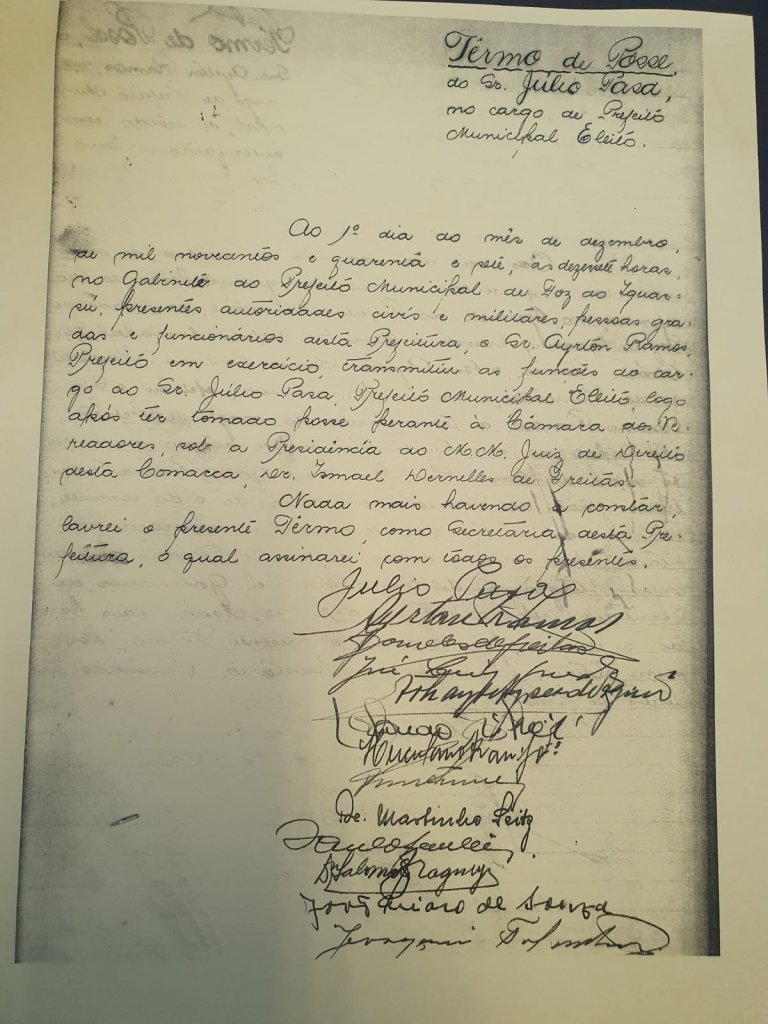 Têrmo de Posse,
do Sr. Júlio Pasa,
no cargo de Prefeito
Municipal Eleito.
Ao 1º dia do mês de dezembro,
de mil novecentos e quarenta e sete, às dezesete horas,
no Gabinete do Prefeito Municipal de Foz do Iguas-
sú, presentes autoridades civís e militares, pessoas gra-
das e funcionários desta Prefeitura, o Sr. Ayrton Ramos,
Prefeito em exercício, transmitiu as funcões do car-
go ao Sr. Júlio Pasa, Prefeito Municipal Eleito, logo
após ter tomado posse perante à Câmara dos Ve-
readores, sob a Presidência do M.M. Juiz de Direito
desta Comarca, Dr. Ismael Dornelles de Freitas.
Nada mais havendo a constar,
lavrei o presente Têrmo, como Secretária desta Pre-
feitura, o qual assinarei com todos os presentes.
Julio Pasa
Ayrton Ramos
Dornelles de Freitas
Pe. Martinho Seitz
de Souza